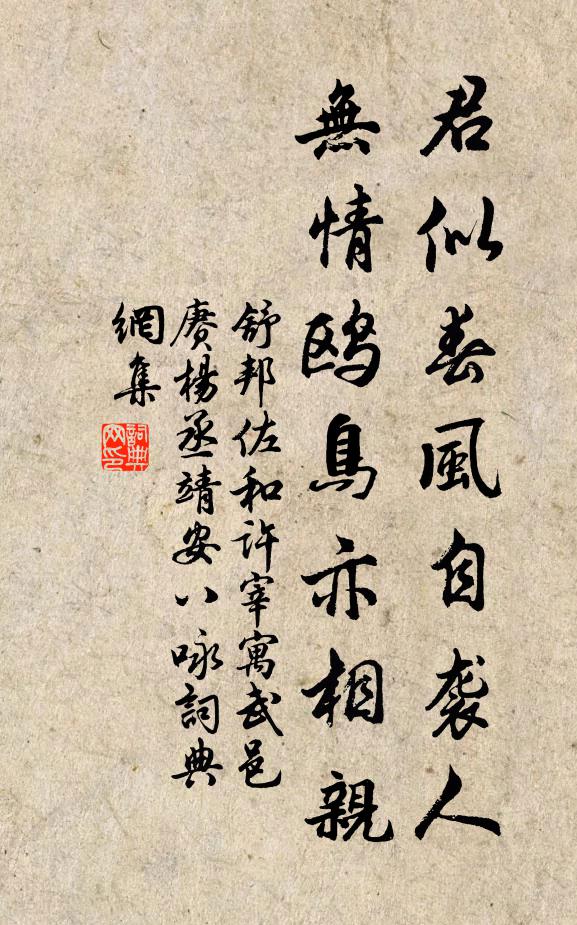 君似春風自袭人
無情鸥鳥亦相親
舒邦佐和許宰寓武邑
赓楊丞靖安八咏詞典
網集
詞典网印